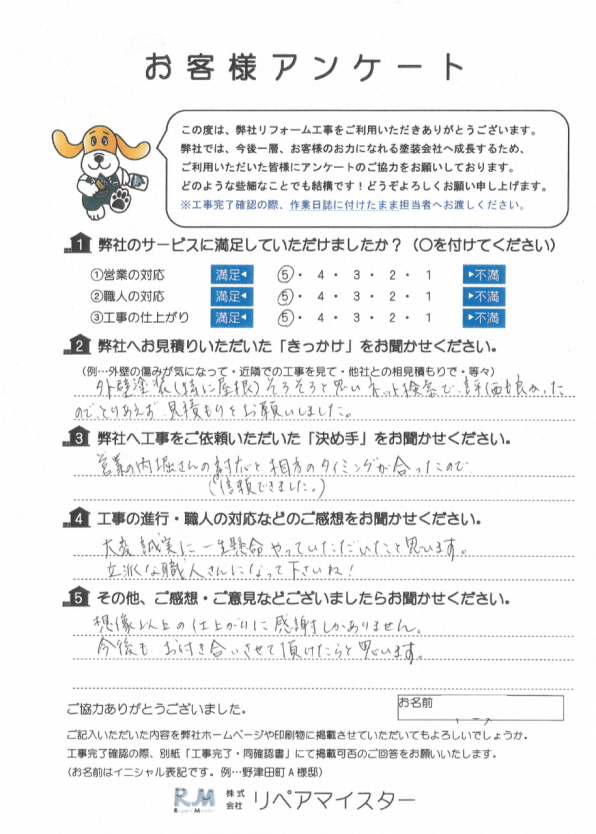 お客様アンケート
この度は、弊社リフォーム工事をご利用いただきありがとうございます。
弊社では、今後一層、お客様のお力になれる塗装会社へ成長するため、
ご利用いただいた皆様にアンケートのご協力をお願いしております。
どのような些細なことでも結構です！どうぞよろしくお願い申し上げます。
※工事完了確認の際、作業日誌に付けたまま担当者へお渡しください。
1 弊社のサービスに満足していただけましたか？（〇を付けてください）
①営業の対応 満足◀ 5・4・3・2・1 ▶不満
②職人の対応 満足◀ 5・4・3・2・1 ▶不満
③工事の仕上がり 満足◀ 5・4・3・2・1 ▶不満
2 弊社へお見積りいただいた「きっかけ」をお聞かせください。
（例…外壁の傷みが気になって・近隣での工事を見て・他社との相見積もりで・等々）
外壁塗装(特に屋根)そろそろと思いネット検索で、評価も良かった
のでとりあえず見積もりをお願いしました。
3 弊社へ工事をご依頼いただいた「決め手」をお聞かせください。
営業の内堀さんの対応と相方のタイミングが合ったので
(信頼できました。)
4 工事の進行・職人の対応などのご感想をお聞かせください。
大変誠実に一生懸命やっていただいたと思います。
立派な職人さんになって下さいね！
5 その他、ご感想・ご意見などございましたらお聞かせください。
想像以上の仕上がりに感謝しかありません。
今後もお付き合いさせて頂けたらと思います。
ご協力ありがとうございました。
お名前
ご記入いただいた内容を弊社ホームページや印刷物に掲載させていただいてもよろしいでしょうか。
工事完了確認の際、別紙「工事完了・同確認書」にて掲載可否のご回答をお願いいたします。
（お名前はイニシャル表記です。例…野津田町A様邸）
RM Repair Meister 株式会社 リペアマイスター